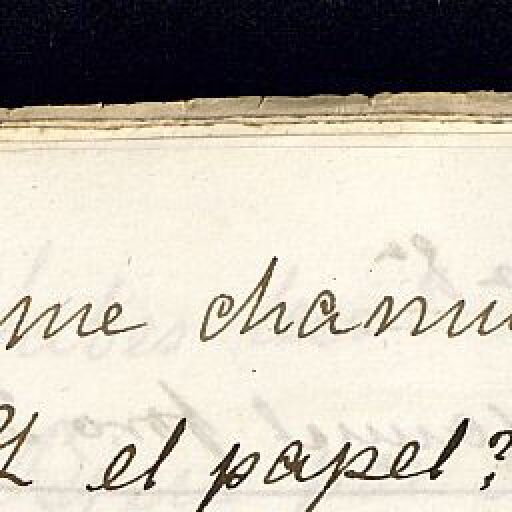 me chamu
el papel?